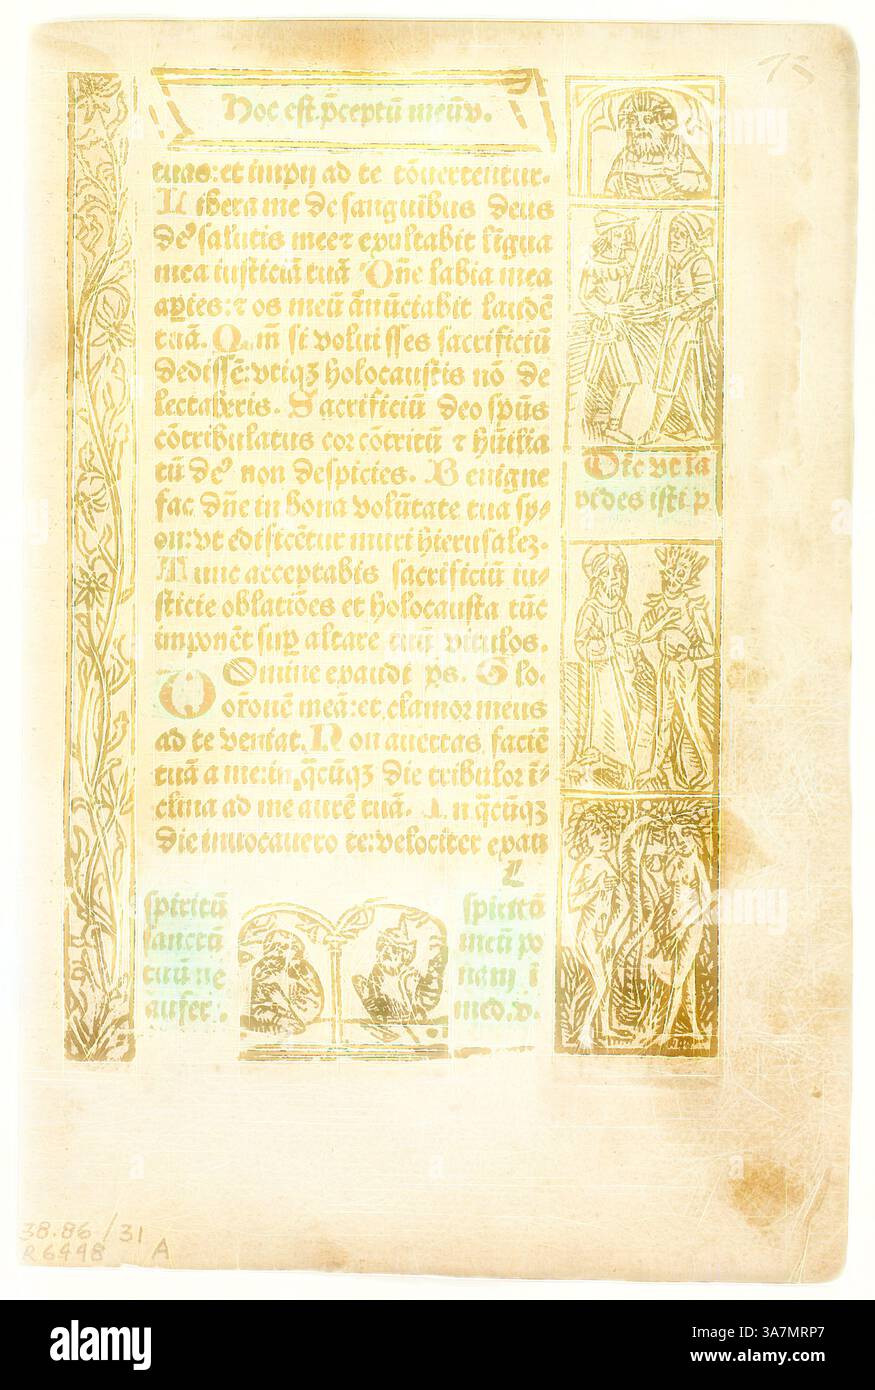 Hoc est p̄ceptū meū v.
tuas: et impij ad te cōuertentur.
Libera me de sanguibus deus
de⁹ salutis mee ⁊ exultabit ligua
mea iusticiā tuā Dn̄e labia mea
apies: ⁊ os meū ānūciabit laudē
tuā. Qm̄ si voluisses sacrificiū
dedissē: vtiqꝫ holocaustis nō de
lectaberis. Sacrificiū deo spūs
cōtribulatus cor cōtritū ⁊ hūilia
tū de⁹ non despicies. Benigne
fac dn̄e in bona volūtate tua sy⸗
on: vt edificētur muri hierusalez.
Tunc acceptabis sacrificiū iu⸗
sticie oblatiōes et holocausta tūc
imponēt sup altare tuū vitulos.
Domine exaudi ps.
orōnē meā: et clamor meus
ad te veniat. Non auertas faciē
tuā a me: in q̄cūqꝫ die tribulor ī⸗
clina ad me aurē tuā. In q̄cūqꝫ
die inuocauero te: velociter exau
L
Dic vt sā
vedes isti p
spiritū
sanctū
tuū ne
aufer.
spiritū
meū po
nam ī
med. v.
38.86/31
R6498 A
alamy
Image ID: 3A7MRP7
www.alamy.com